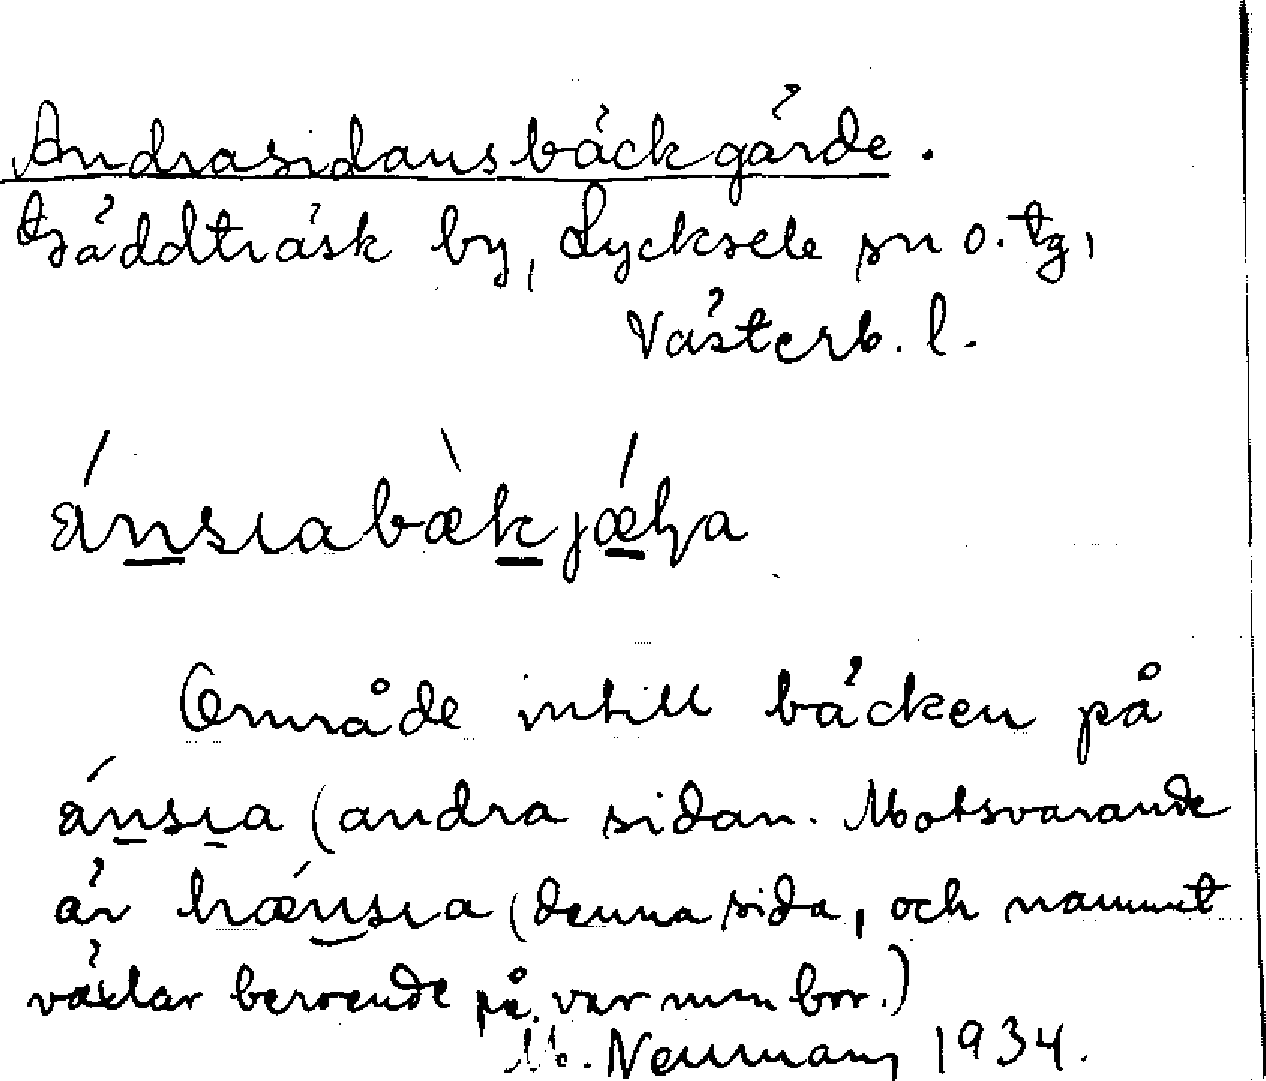 Andrasidansbäckgärde.
Gäddträsk by, Lycksele sn o. tg,
Västerb. l.
ánsıabækjæḷa
Område intill bäcken på
ánsıa (andra sidan. Motsvarande
är hænsıa (denna sida, och namnet
växlar beroende på var man bor.)
M. Neumann 1934.